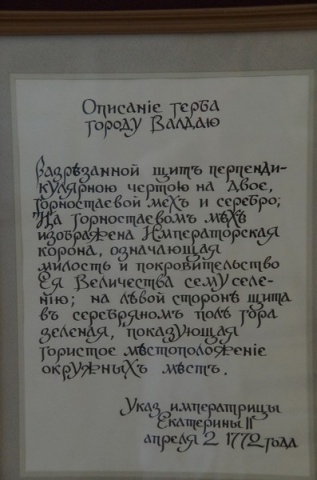 Описанiе герба
городу Валдаю
Разрѣзанной щитъ перпенди-
кулярною чертою на двое,
горностаевой мехъ и серебро;
На горностаевомъ мѣхѣ
изображена Императорская
корона, означающая
милость и покровительство
Ея Величества сему селе-
нiю; на лѣвой сторонѣ щита
въ серебряномъ полѣ гора
зеленая, показующая
гористое мѣстоположенiе
окружныхъ мѣстъ.
Указ императрицы
Екатерины II
апреля 2 1772 года